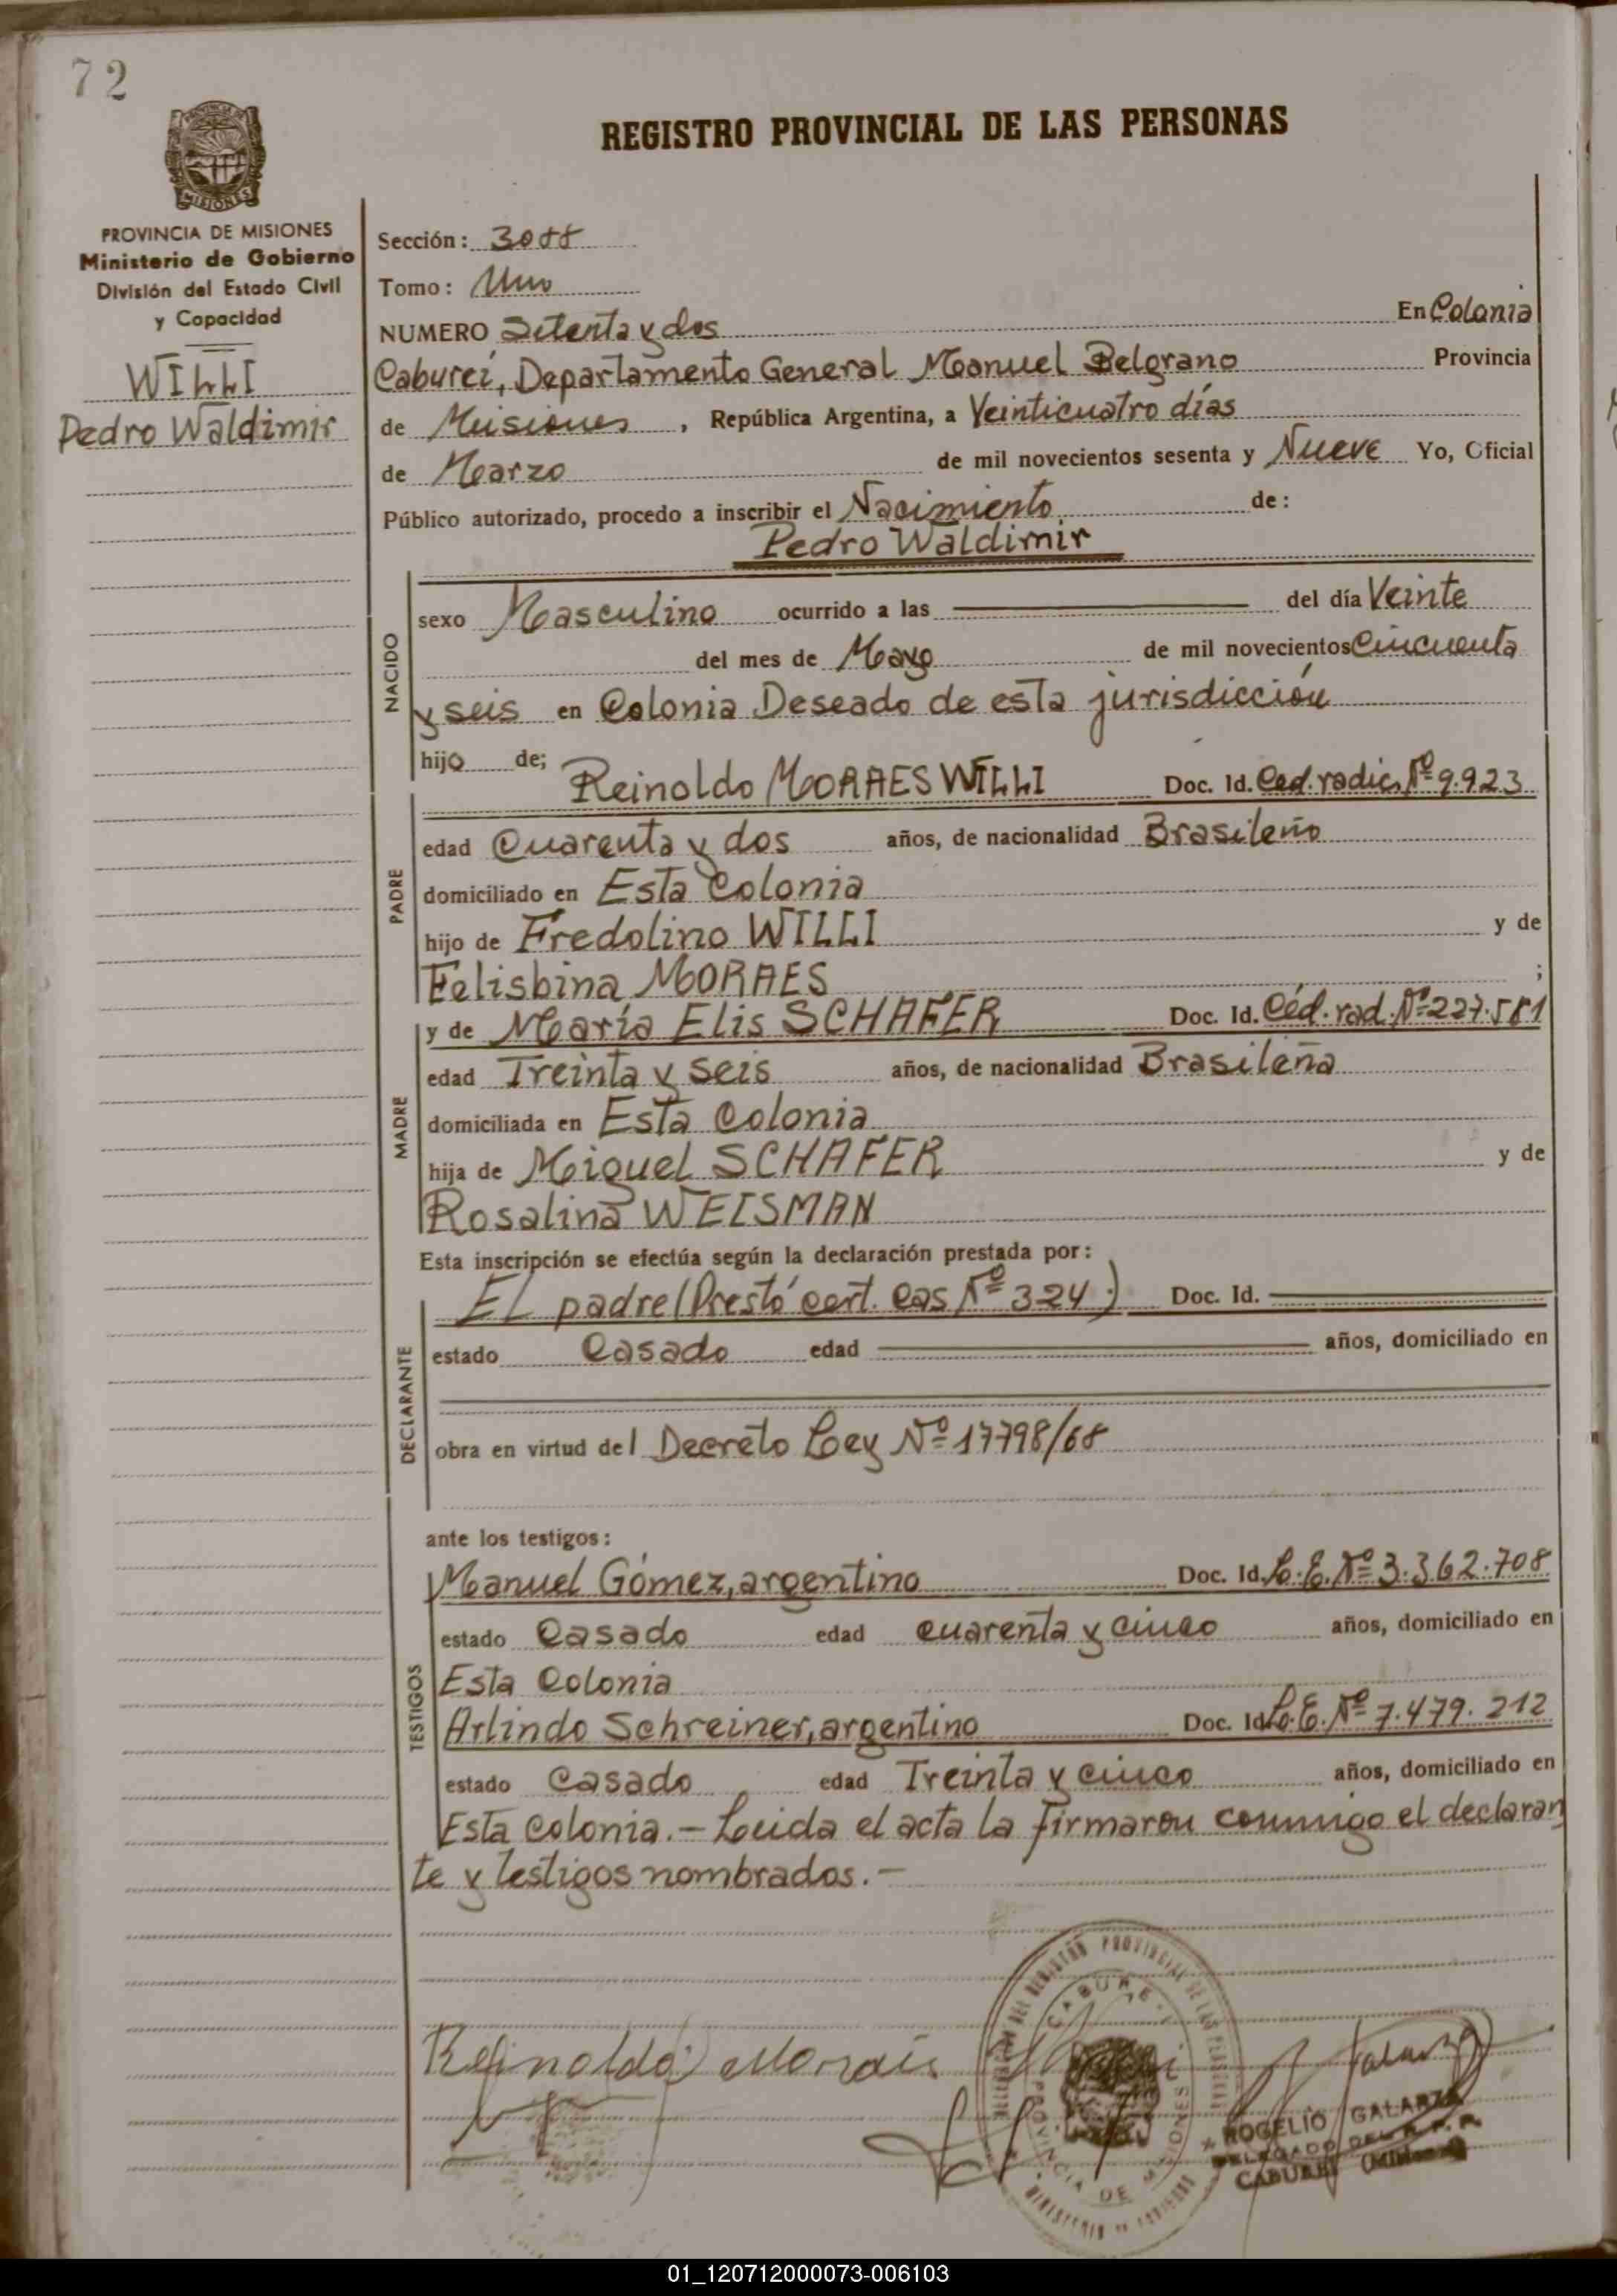 72
REGISTRO PROVINCIAL DE LAS PERSONAS
PROVINCIA DE
MISIONES
PROVINCIA DE MISIONES
Ministerio de Gobierno
División del Estado Civil
y Capacidad
WILLI
Pedro Waldimir
Sección:
Tomo: Uno
NUMERO Setenta y dos En Colonia
Cabureí, Departamento General Manuel Belgrano Provincia
de Misiones, República Argentina, a Veinticuatro días
de Marzo de mil novecientos sesenta y Nueve Yo, Oficial
Público autorizado, procedo a inscribir el Nacimiento de:
Pedro Waldimir
NACIDO
sexo Masculino ocurrido a las del día Veinte
del mes de Mayo de mil novecientos Cincuenta
y seis en Colonia Deseado de esta jurisdicción
hijo de;
Reinoldo MORAES WILLI Doc. Id. Ced. radic. Nº 9.923
PADRE
edad Cuarenta y dos años, de nacionalidad Brasileño
domiciliado en Esta Colonia
hijo de Fredolino WILLI y de
Felisbina MORAES ;
y de María Elis SCHAFER Doc. Id. Céd. rad. Nº 227.581
MADRE
edad Treinta y seis años, de nacionalidad Brasileña
domiciliada en Esta Colonia
hija de Miguel SCHAFER y de
Rosalina WEISMAN
Esta inscripción se efectúa según la declaración prestada por:
DECLARANTE
El padre (Prestó cert. Cas Nº 324.) Doc. Id.
estado Casado edad años, domiciliado en
obra en virtud del Decreto Ley Nº 17798/68
ante los testigos:
TESTIGOS
Manuel Gómez, argentino Doc. Id. L.E. Nº 3.362.708
estado Casado edad cuarenta y cinco años, domiciliado en
Esta Colonia
Arlindo Schreiner, argentino Doc. Id. L.E. Nº 7.479.212
estado Casado edad Treinta y cinco años, domiciliado en
Esta Colonia. - Leída el acta la firmaron conmigo el declaran
te y testigos nombrados. -
REGISTRO PROVINCIAL DE LAS PERSONAS
CABUREI
PROVINCIA DE MISIONES
MINISTERIO DE GOBIERNO
Reinoldo Morais
ROGELIO GALARZA
DELEGADO DEL R.P.P.
CABUREI
01_120712000073-006103